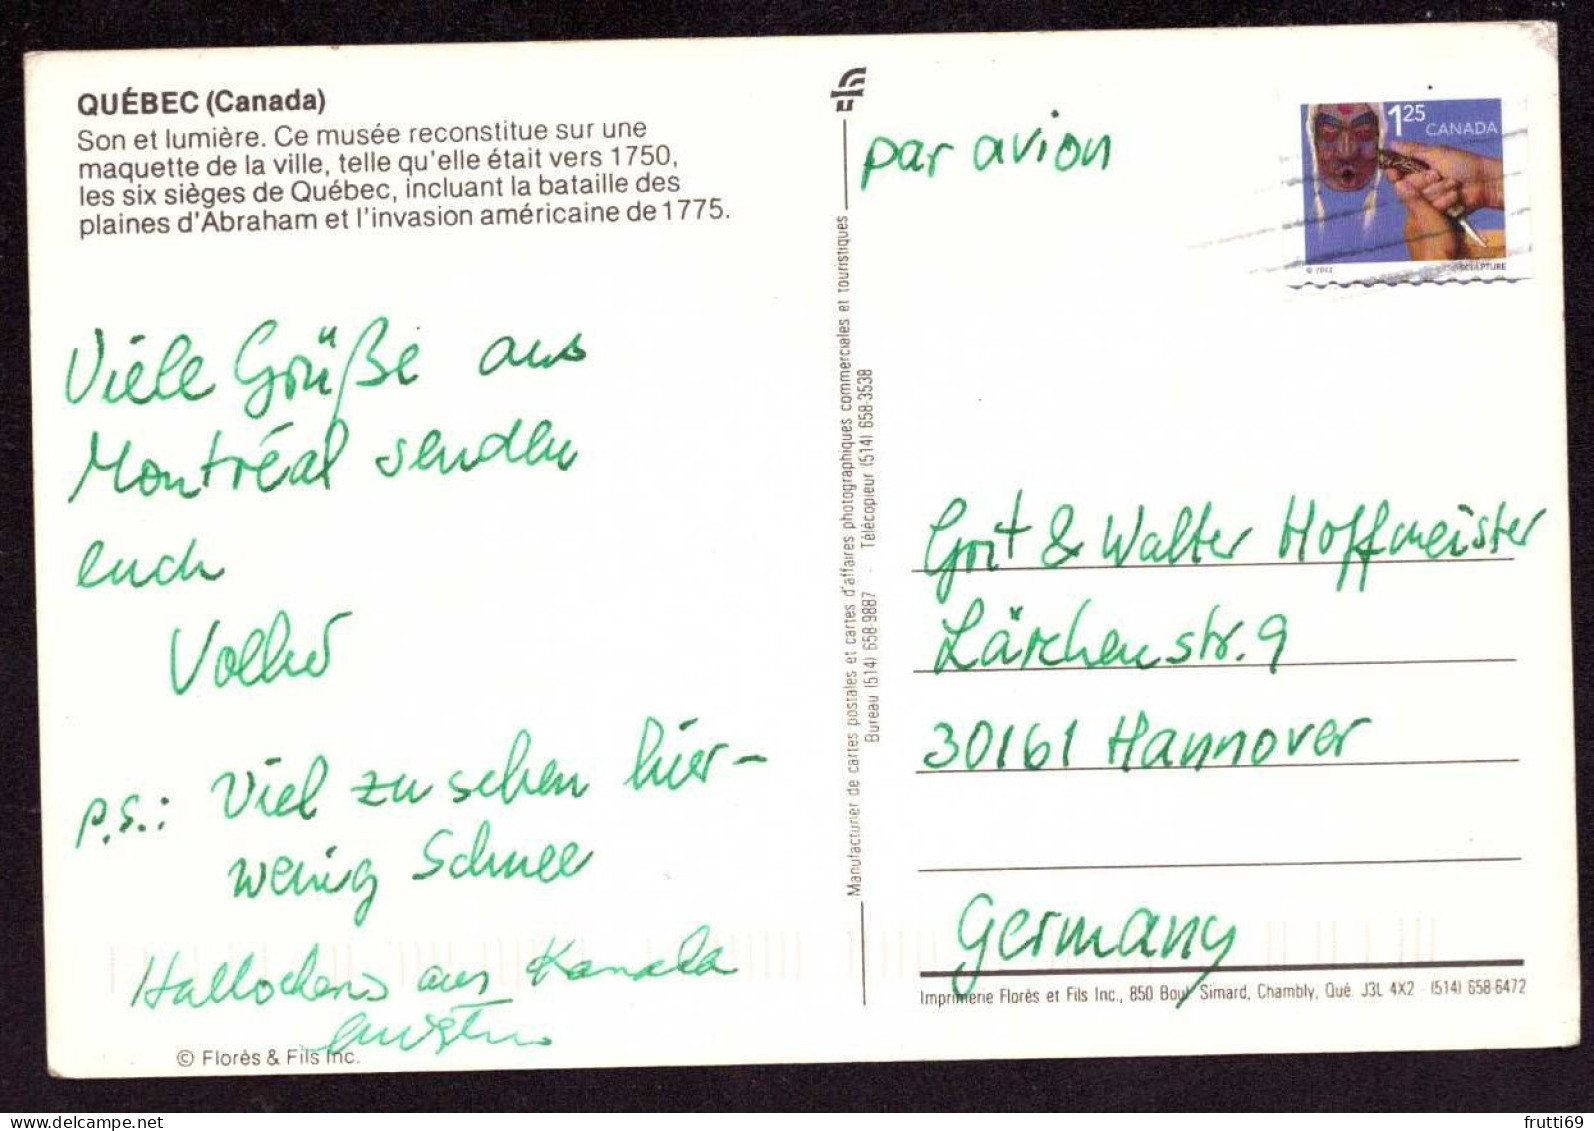 QUÉBEC (Canada)
Son et lumière. Ce musée reconstitue sur une
maquette de la ville, telle qu'elle était vers 1750,
les six sièges de Québec, incluant la bataille des
plaines d'Abraham et l'invasion américaine de 1775.
Viele Grüße aus
Montréal senden
euch
Volker
P.S.: Viel zu sehen hier-
wenig Schnee
Hallochens aus Kanada
© Florès & Fils Inc.
Manufacturier de cartes postales et cartes d'affaires photographiques commerciales et touristiques
Bureau (514) 658-9887 Télécopieur (514) 658-3538
par avion
1.25 CANADA
SCULPTURE
Grit & Walter Hoffmeister
Lärchenstr. 9
30161 Hannover
Germany
Imprimerie Florès et Fils Inc., 850 Boul. Simard, Chambly, Qué. J3L 4X2 - (514) 658-6472
frutti69